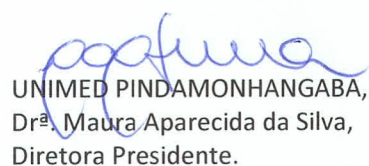 UNIMED PINDAMONHANGABA,
Drª. Maura Aparecida da Silva,
Diretora Presidente.